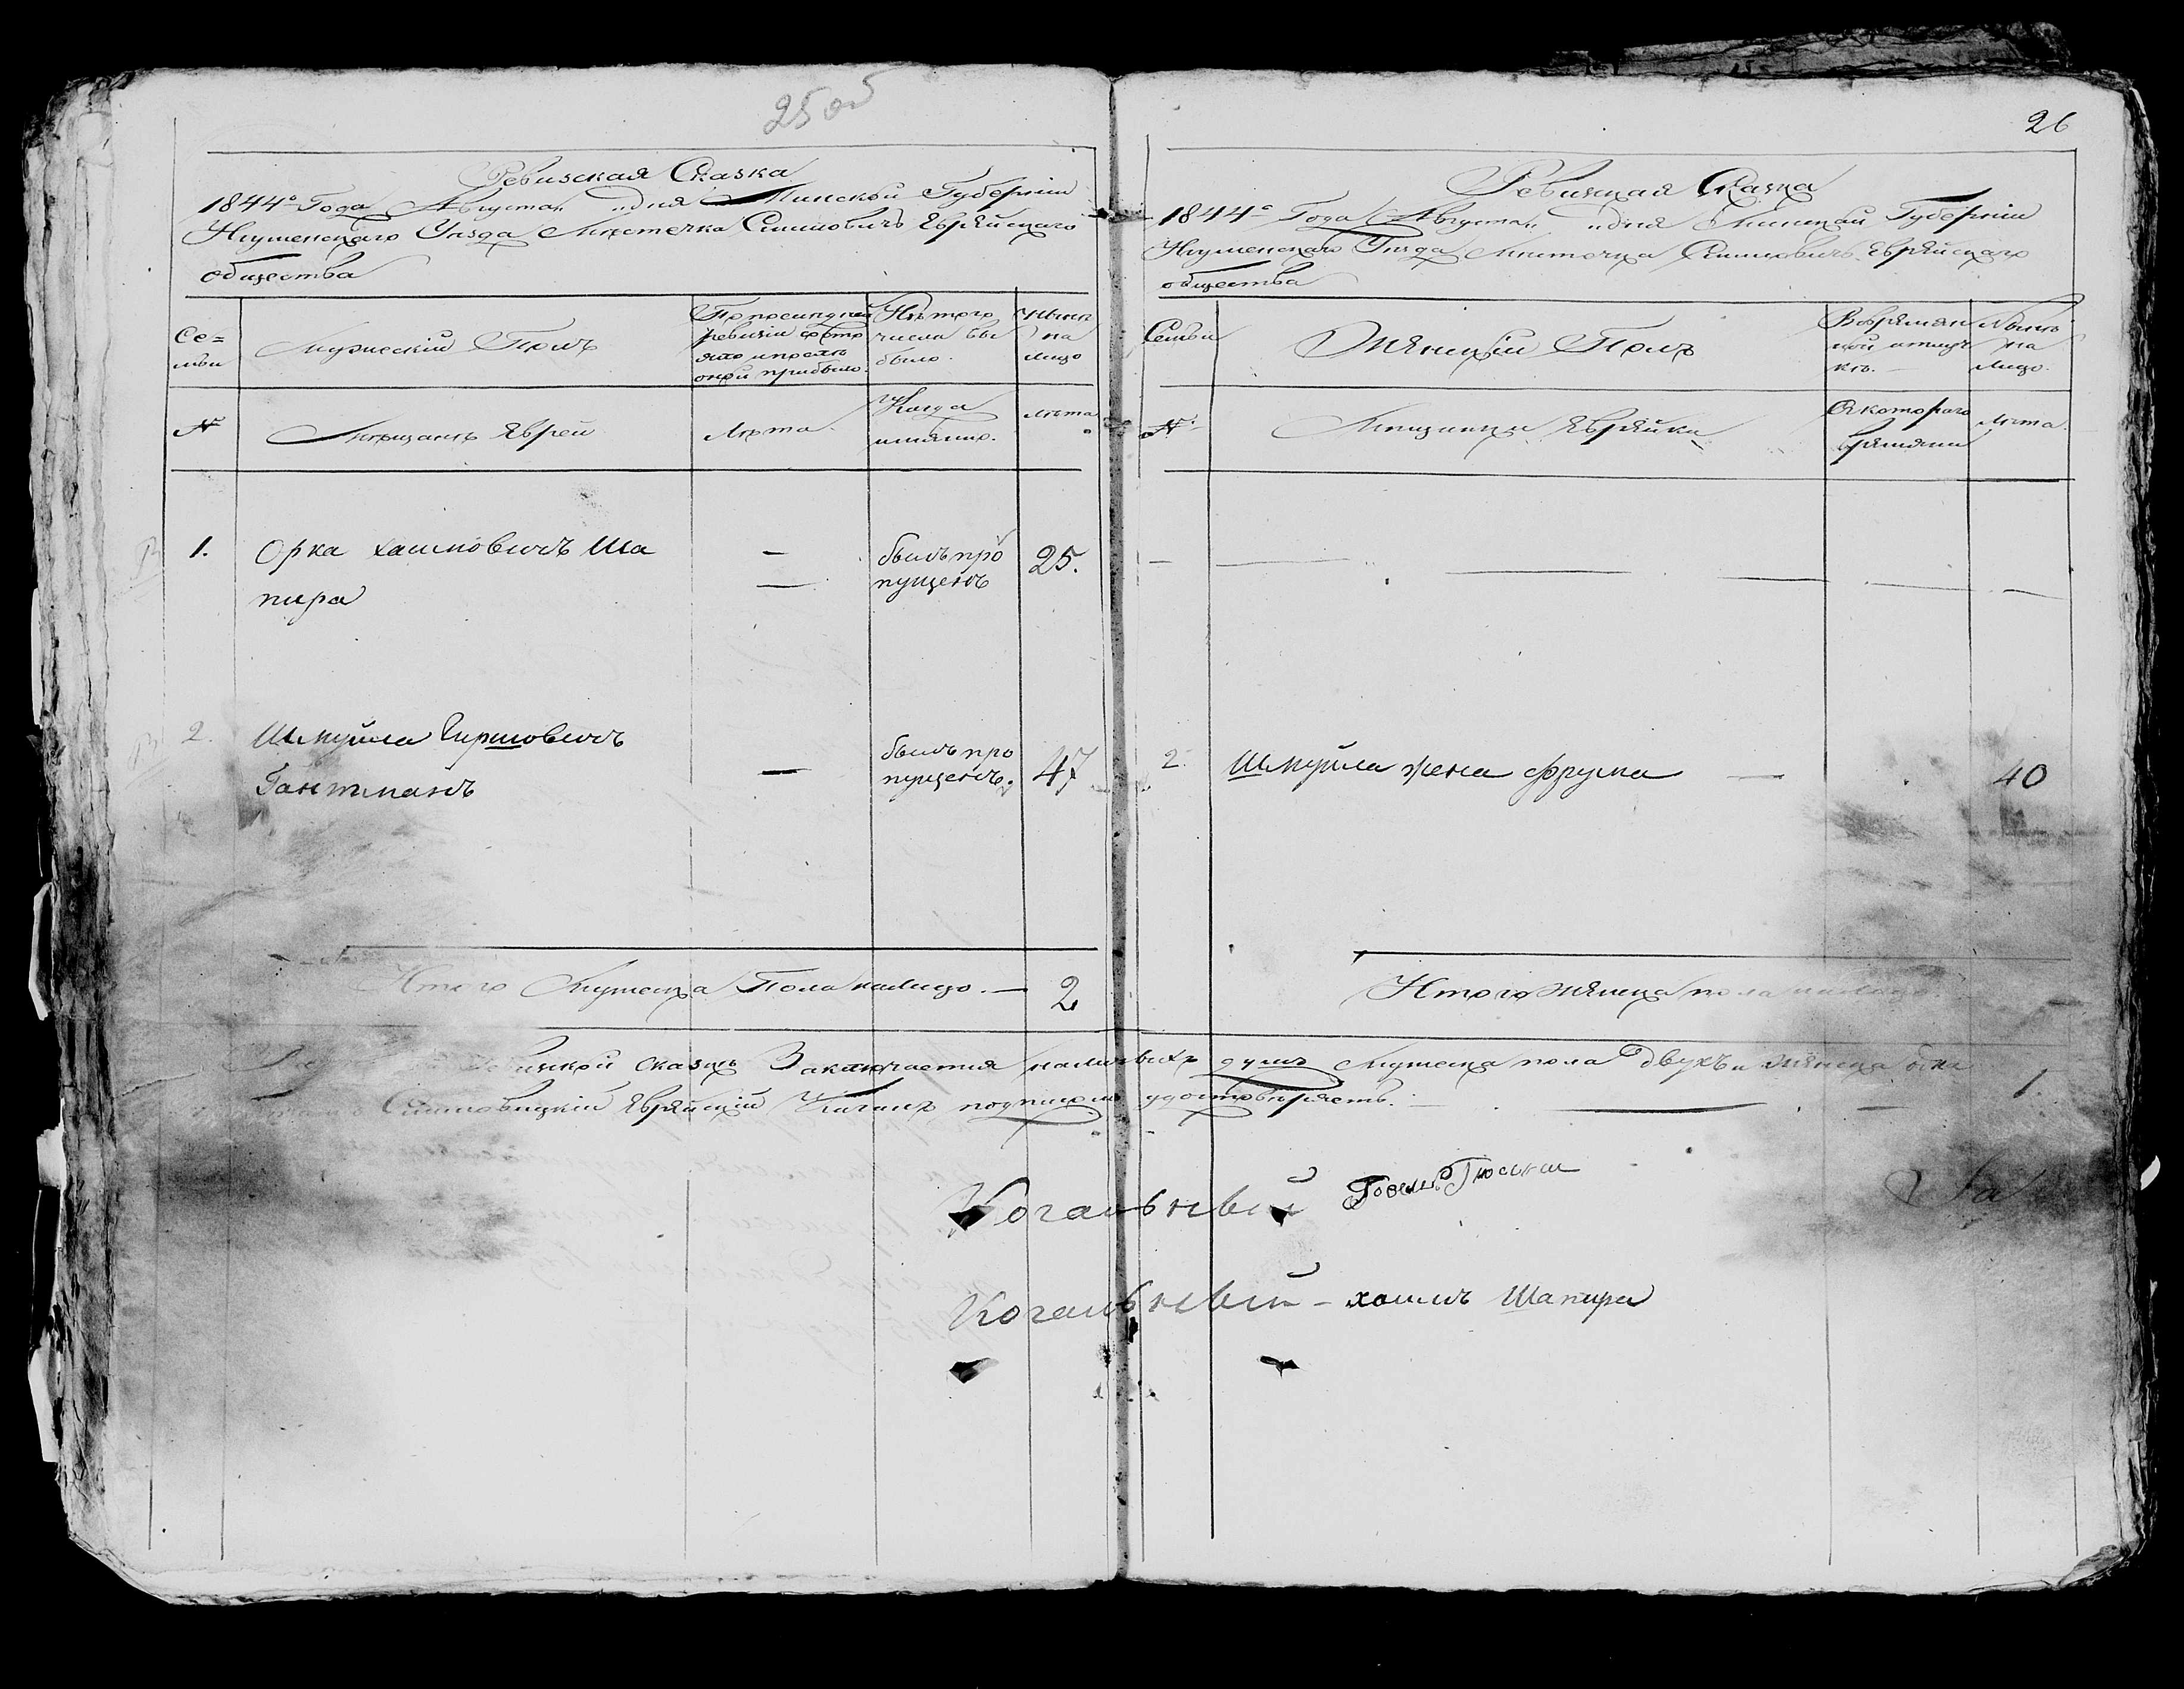 25 об
Ревизская Сказка
1844го Года Августа „ „ дня Минской Губернии
Игуменскаго Уезда Местечка Смиловичъ Еврейскаго
общества
Се=
мьи
Мужеский Полъ
По последней
ревизии состо
яло и после
оной прибыло.
Из того
числа вы
было.
Ныне
на
лицо
№
Мещане Евреи
Лета.
Когда
имянно.
Лета
1.
Орка хаимовичъ Ша
пира
—
—
былъ про
пущенъ
25.
2.
Шмуйла Гиршовичъ
Гантманъ
—
былъ про
пущенъ
47
Итого Мужеска Пола налицо. —
2
26
Ревизская Сказка
1844го Года Августа „ „ дня Минской Губернии
Игуменскаго Уезда Местечка Смиловичъ Еврейскаго
общества
Семьи
Женский Полъ
Вовремен
ной отлуч
ке.
Ныне
на
лицо.
№
Мещанки Еврейки
Скотораго
времени
Лета.
2.
Шмуйла жена Фрума —
40
Итого Женска пола налицо.
1.
Ревизской сказке Заключается наличныхъ душъ Мужеска пола двухъ и Женска одна
Смиловицкий Еврейский Кагалъ подписомъ удостоверяетъ.
Когальный
Когальный – хаимъ Шапира